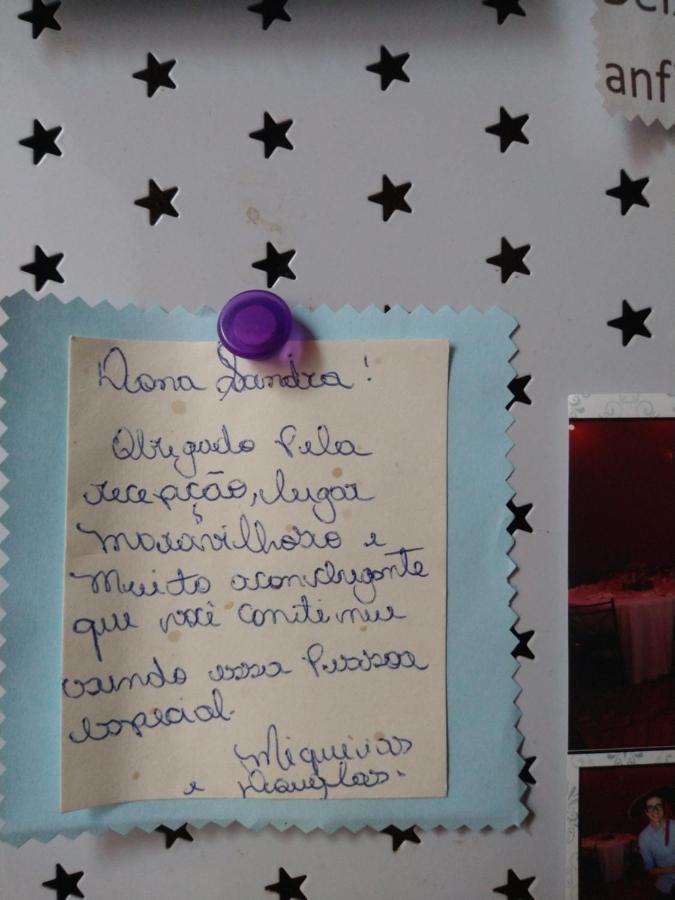 anf
Dona Sandra!
Obrigado pela
recepção, lugar
maravilhoso e
muito aconchegante
que você continue
sendo essa pessoa
especial.
Miqueias
e Douglas.